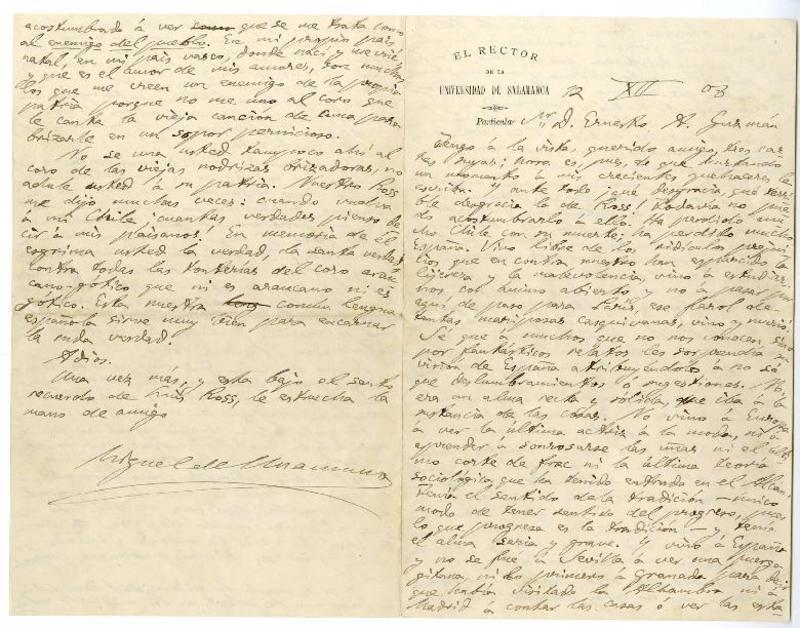 EL RECTOR
DE LA
UNIVERSIDAD DE SALAMANCA 12 XII 08
Particular Sr. D. Ernesto A. Guzmán
Tengo á la vista, querido amigo, tres car
tas suyas; hora es, pues, de que hurtando
un momento á mis crecientes quehaceres le
escriba. Y ante todo ¡qué desgracia, qué terri
ble desgracia la de Ross! Todavía no pue
do acostumbrarme á ello. Ha perdido mu
cho Chile con su muerte; ha perdido mucho
España. Vino libre de los ridículos prejui
cios que en contra nuestra han esparcido la
lijereza y la malevolencia, vino á estudiar
nos con ánimo abierto y no á pasar por
aquí de paso para París, ese farol de
tantas mariposas casquivanas, vino y murió.
Sé que á muchos que no nos conocen sino
por fantásticos relatos les sorprendía su
visión de España atribuyéndola á no sé
que deslumbramientos ó sugestiones. No,
era un alma recta y sólida, que iba á la
sustancia de las cosas. No vino á Europa
á ver la última actriz á la moda, ni á
aprender á sonrosarse las uñas ni el últi
mo corte de frac ni la última teoría
sociológica que ha tenido entrada en el
Tenía el sentido de la tradición — único
modo de tener sentido del progreso, pues
lo que progresa es la tradición — y tenía
el alma seria y grave. Y vino á España
y no se fué á Sevilla á ver una juerga
gitana, ni lo primero á Granada para decir
que había visitado la Alhambra ni á
Madrid á contar las casas ó ver las esta
acostumbrado á ver que se me trata como
al enemigo del pueblo. En mi propio país
natal, en mi país vasco, donde nací y me crié
y que es el amor de mis amores, son muchos
los que me creen un enemigo de la propia
patria porque no me uno al coro que
le canta la vieja canción de cuna para
brizarle en un sopor pernicioso.
No se una usted tampoco ahí al
coro de las viejas nodrizas brizadoras, no
adule usted á su patria. Nuestro Ross
me dijo muchas veces: cuando vuelva
á mi Chile ¡cuántas verdades pienso de
cir á mis paisanos! En memoria de él
esgrima usted la verdad, la santa verdad
contra todas las tonterías del coro arau
cano-gótico que ni es araucano ni es
gótico. Esta nuestra común lengua
española sirve muy bien para encarnar
la ruda verdad.
Adios.
Una vez más, y esta bajo el santo
recuerdo de Luis Ross, le estrecha la
mano de amigo
Miguel de Unamuno